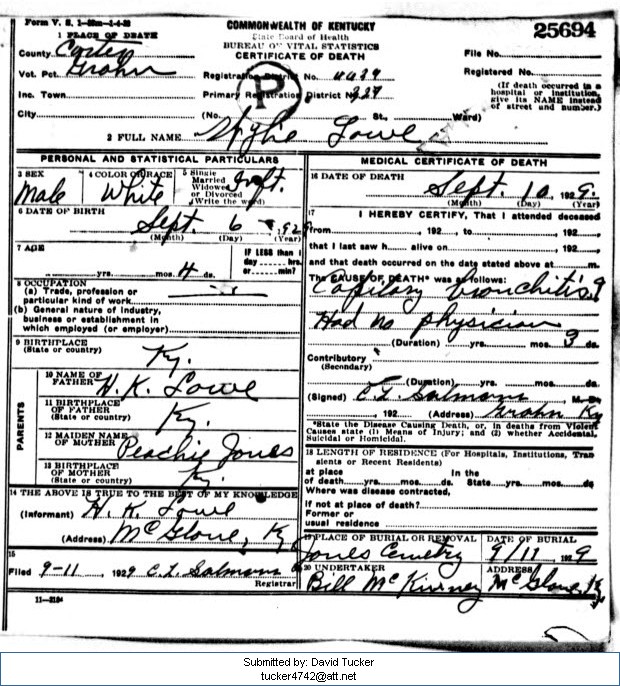 Form V. S. 1-
COMMONWEALTH OF KENTUCKY
State Board of Health
BUREAU OF VITAL STATISTICS
CERTIFICATE OF DEATH
25694
1 PLACE OF DEATH
County Carter
Vot. Pct. Grahn
Inc. Town
City
Registration District No.
Primary Registration District No.
(No. St., Ward)
File No.
Registered No.
(If death occurred in a
hospital or institution,
give its NAME instead
of street and number.)
P
2 FULL NAME Lowe
PERSONAL AND STATISTICAL PARTICULARS
3 SEX
Male
4 COLOR OR RACE
White
5 Single
Married
Widowed
or Divorced
(Write the word)
Inft.
6 DATE OF BIRTH
Sept. 6 , 1929
(Month) (Day) (Year)
7 AGE
yrs. mos. 4 ds.
IF LESS than 1
day hrs.
or min?
8 OCCUPATION
(a) Trade, profession or
particular kind of work
(b) General nature of industry,
business or establishment in
which employed (or employer)
9 BIRTHPLACE
(State or country)
Ky.
PARENTS
10 NAME OF
FATHER H. K. Lowe
11 BIRTHPLACE
OF FATHER
(State or country) Ky.
12 MAIDEN NAME
OF MOTHER Peachie Jones
13 BIRTHPLACE
OF MOTHER
(State or country) Ky.
14 THE ABOVE IS TRUE TO THE BEST OF MY KNOWLEDGE
(Informant) H. K. Lowe
(Address) McGlone, Ky
15
Filed 9-11, 1929 C. L. Salmons
Registrar
11-3184
MEDICAL CERTIFICATE OF DEATH
16 DATE OF DEATH
Sept. 10, 1929.
(Month) (Day) (Year)
17 I HEREBY CERTIFY, That I attended deceased
from , 192 , to , 192 ,
that I last saw h alive on , 192 ,
and that death occurred on the date stated above at m.
The CAUSE OF DEATH* was as follows:
Capilary bronchitis
Had no physician
(Duration) yrs. mos. 3 ds.
Contributory
(Secondary)
(Duration) yrs. mos. ds.
(Signed) C. L. Salmons M. D.
, 192 (Address) Grahn Ky
*State the Disease Causing Death, or, in deaths from Violent
Causes state (1) Means of Injury; and (2) whether Accidental,
Suicidal or Homicidal.
18 LENGTH OF RESIDENCE (For Hospitals, Institutions, Tran
sients or Recent Residents)
at place In the
of death yrs. mos. ds. State yrs. mos. ds.
Where was disease contracted,
if not at place of death?
Former or
usual residence
19 PLACE OF BURIAL OR REMOVAL
Jones Cemetry
DATE OF BURIAL
9/11 1929
20 UNDERTAKER
Bill McKinney
ADDRESS
McGlone, Ky
Submitted by: David Tucker
tucker4742@att.net